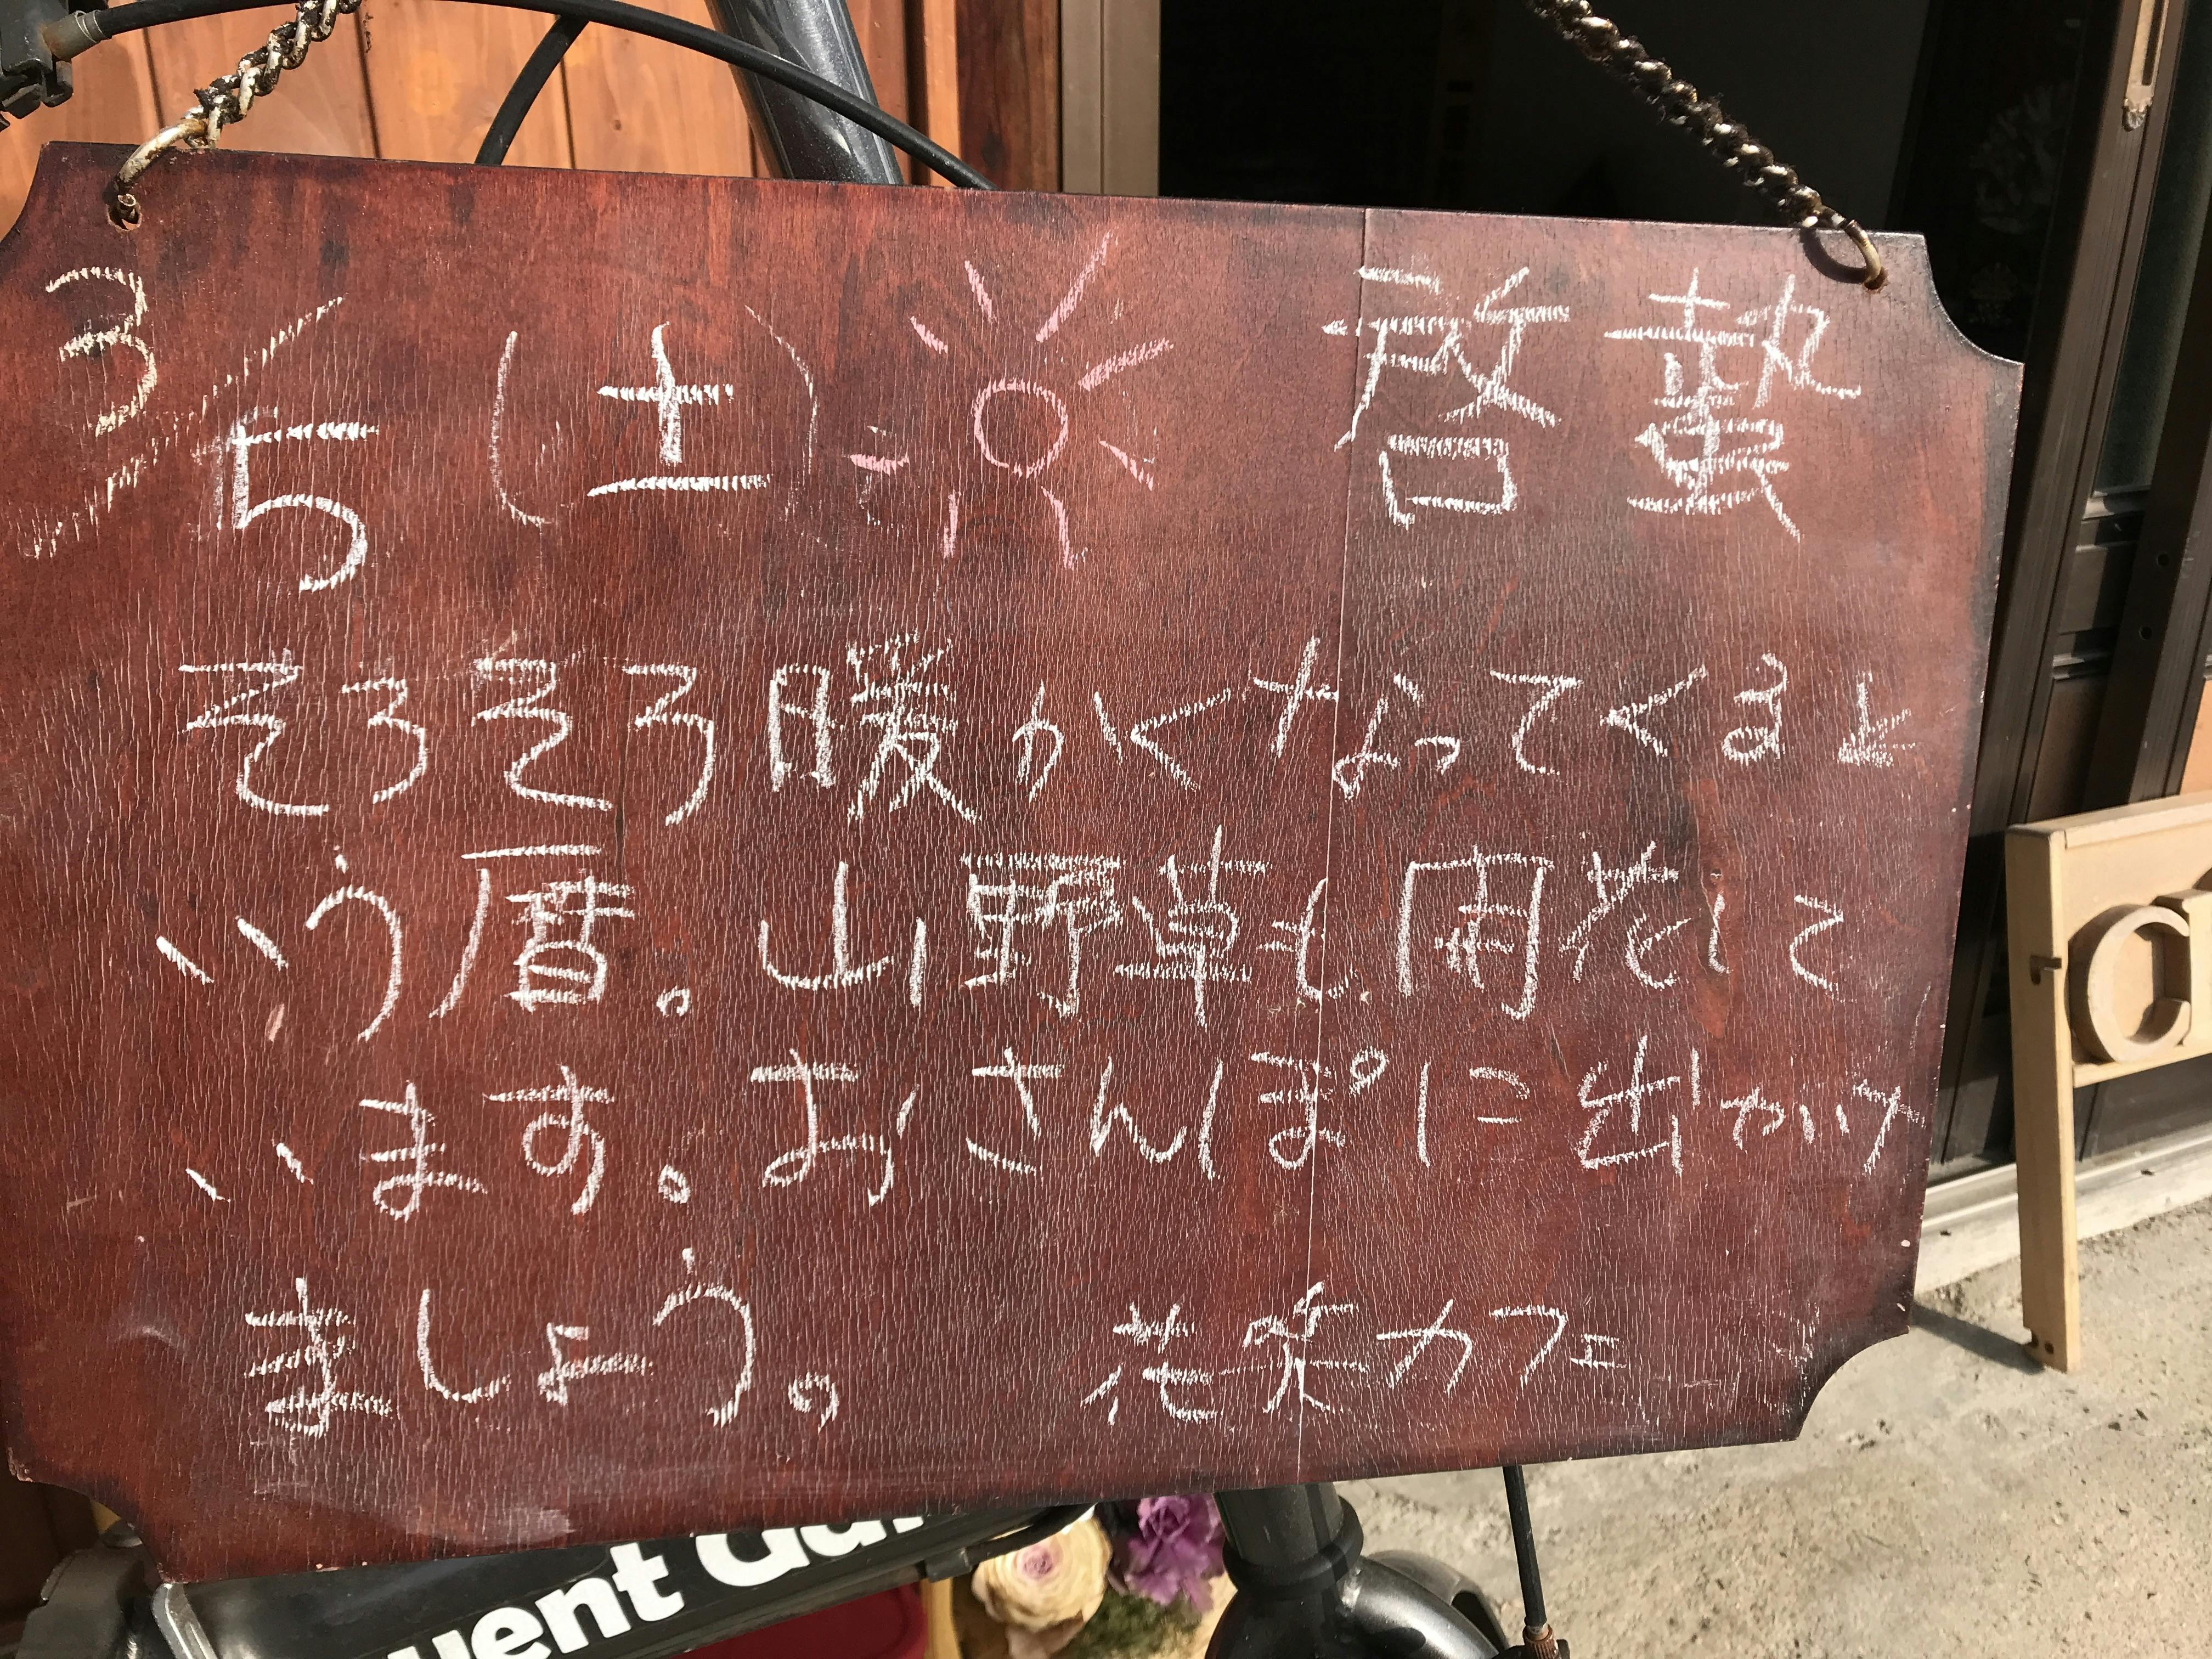 3/5(土) 啓蟄
そろそろ暖かくなってくると
いう暦。山野草も開花して
います。おさんぽに出かけ
ましょう。 花菜カフェ
uent